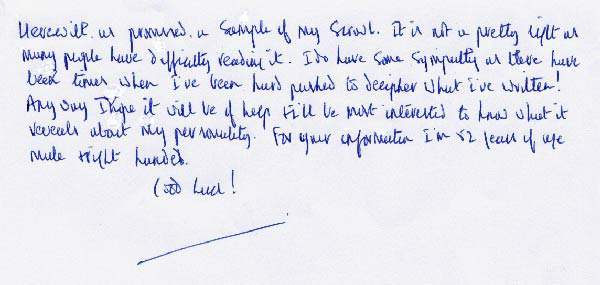 Herewith as promised a sample of my scrawl. It is not a pretty sight as
many people have difficulty reading it. I do have some sympathy as there have
been times when I've been hard pushed to decipher what I've written!
Anyway I hope it will be of help & I'll be most interested to know what it
reveals about my personality. For your information I'm 52 years of age
male & right handed.
Good luck!